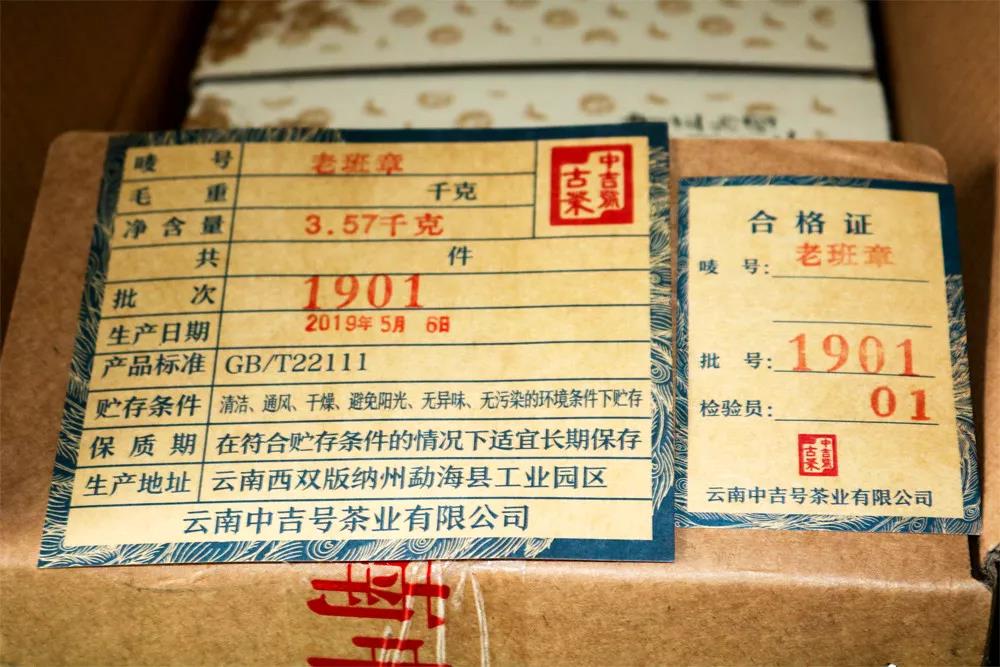 唛 号 老班章
毛 重 千克
净含量 3.57千克
共 件
批 次 1901
生产日期 2019年5月 6日
产品标准 GB/T22111
贮存条件 清洁、通风、干燥、避免阳光、无异味、无污染的环境条件下贮存
保 质 期 在符合贮存条件的情况下适宜长期保存
生产地址 云南西双版纳州勐海县工业园区
云南中吉号茶业有限公司
中吉號
古茶
合格证
唛 号: 老班章
批 号: 1901
检验员: 01
中吉號
古茶
云南中吉号茶业有限公司
南
中